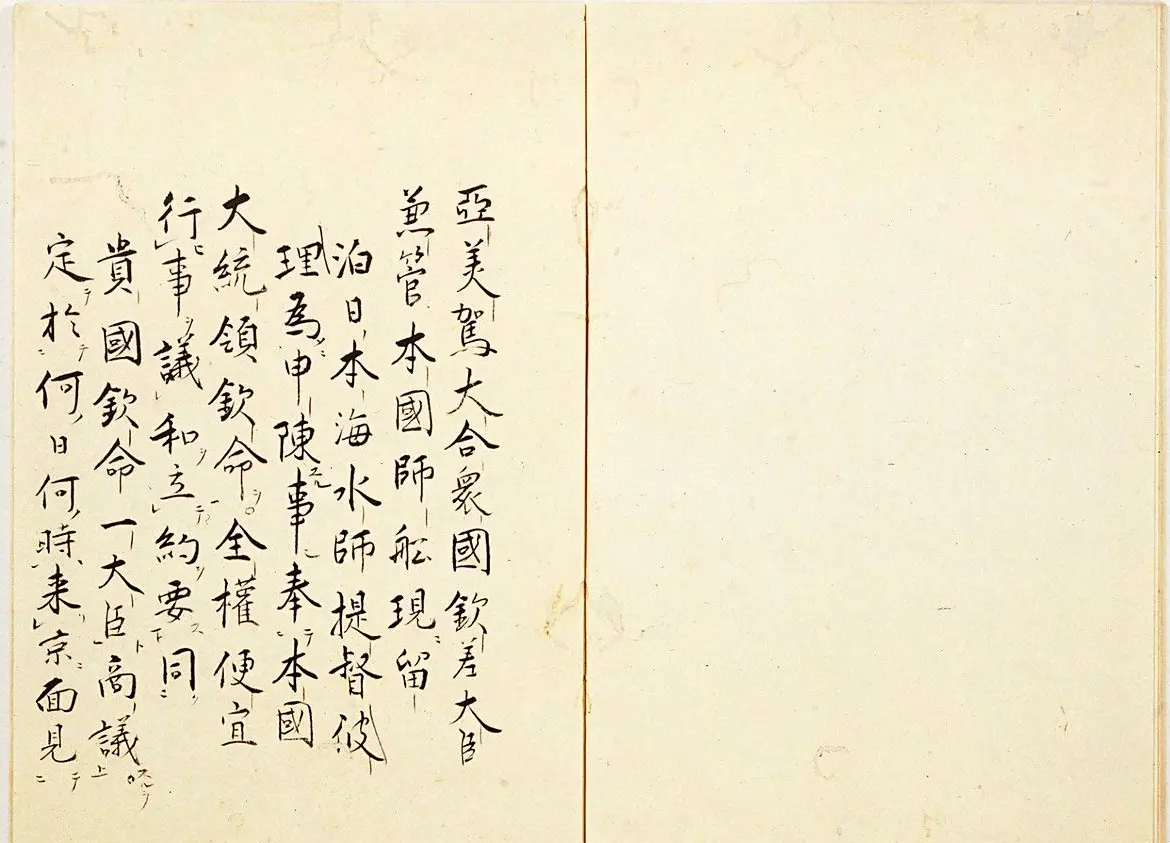 亞美駕大合衆國欽差大臣
兼管本國師船現留
泊日本海水師提督彼
理為申陳事奉本國
大統領欽命全權便宜
行事議和立約要同
貴國欽命一大臣商議
定於何日何時来京面見